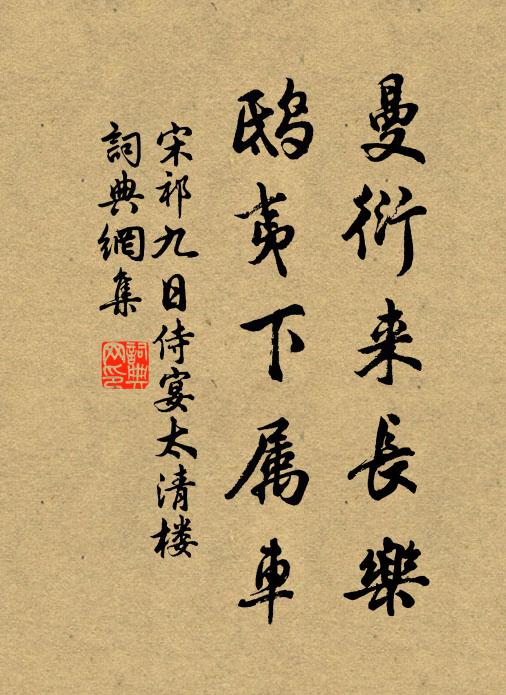 曼衍来長樂
鴟夷下属車
宋祁九日侍宴太清楼
詞典網集
詞典网印